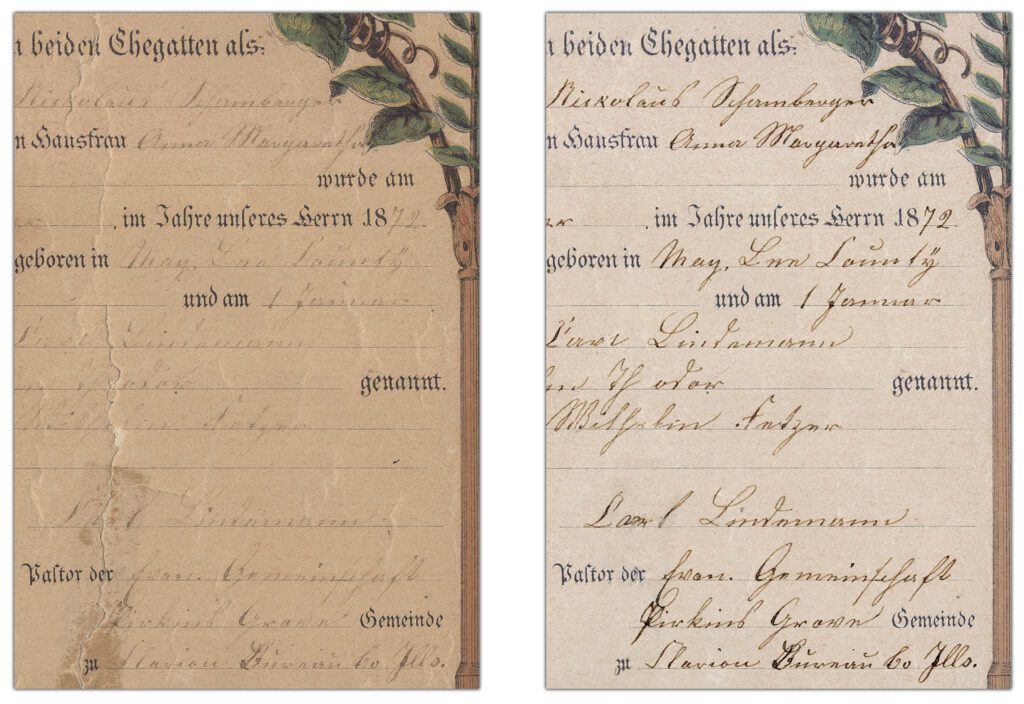 n beiden Ehegatten als:
Nickolaus Schamberger
n Hausfrau Anna Margaretha
wurde am
im Jahre unseres Herrn 1872.
geboren in May, Lee County
und am 1 Januar
Carl Lindemann
Theodor genannt.
Wilhelm Fetzer
Carl Lindemann
Pastor der Evan. Gemeinschaft
Perkins Grove Gemeinde
zu Bureau Co Ills.
n beiden Ehegatten als:
Nickolaus Schamberger
n Hausfrau Anna Margaretha
wurde am
er im Jahre unseres Herrn 1872.
geboren in May, Lee County
und am 1 Januar
Carl Lindemann
Th odor genannt.
Wilhelm Fetzer
Carl Lindemann
Pastor der Evan. Gemeinschaft
Pirkins Grove Gemeinde
zu Clarion Bureau Co Ills.